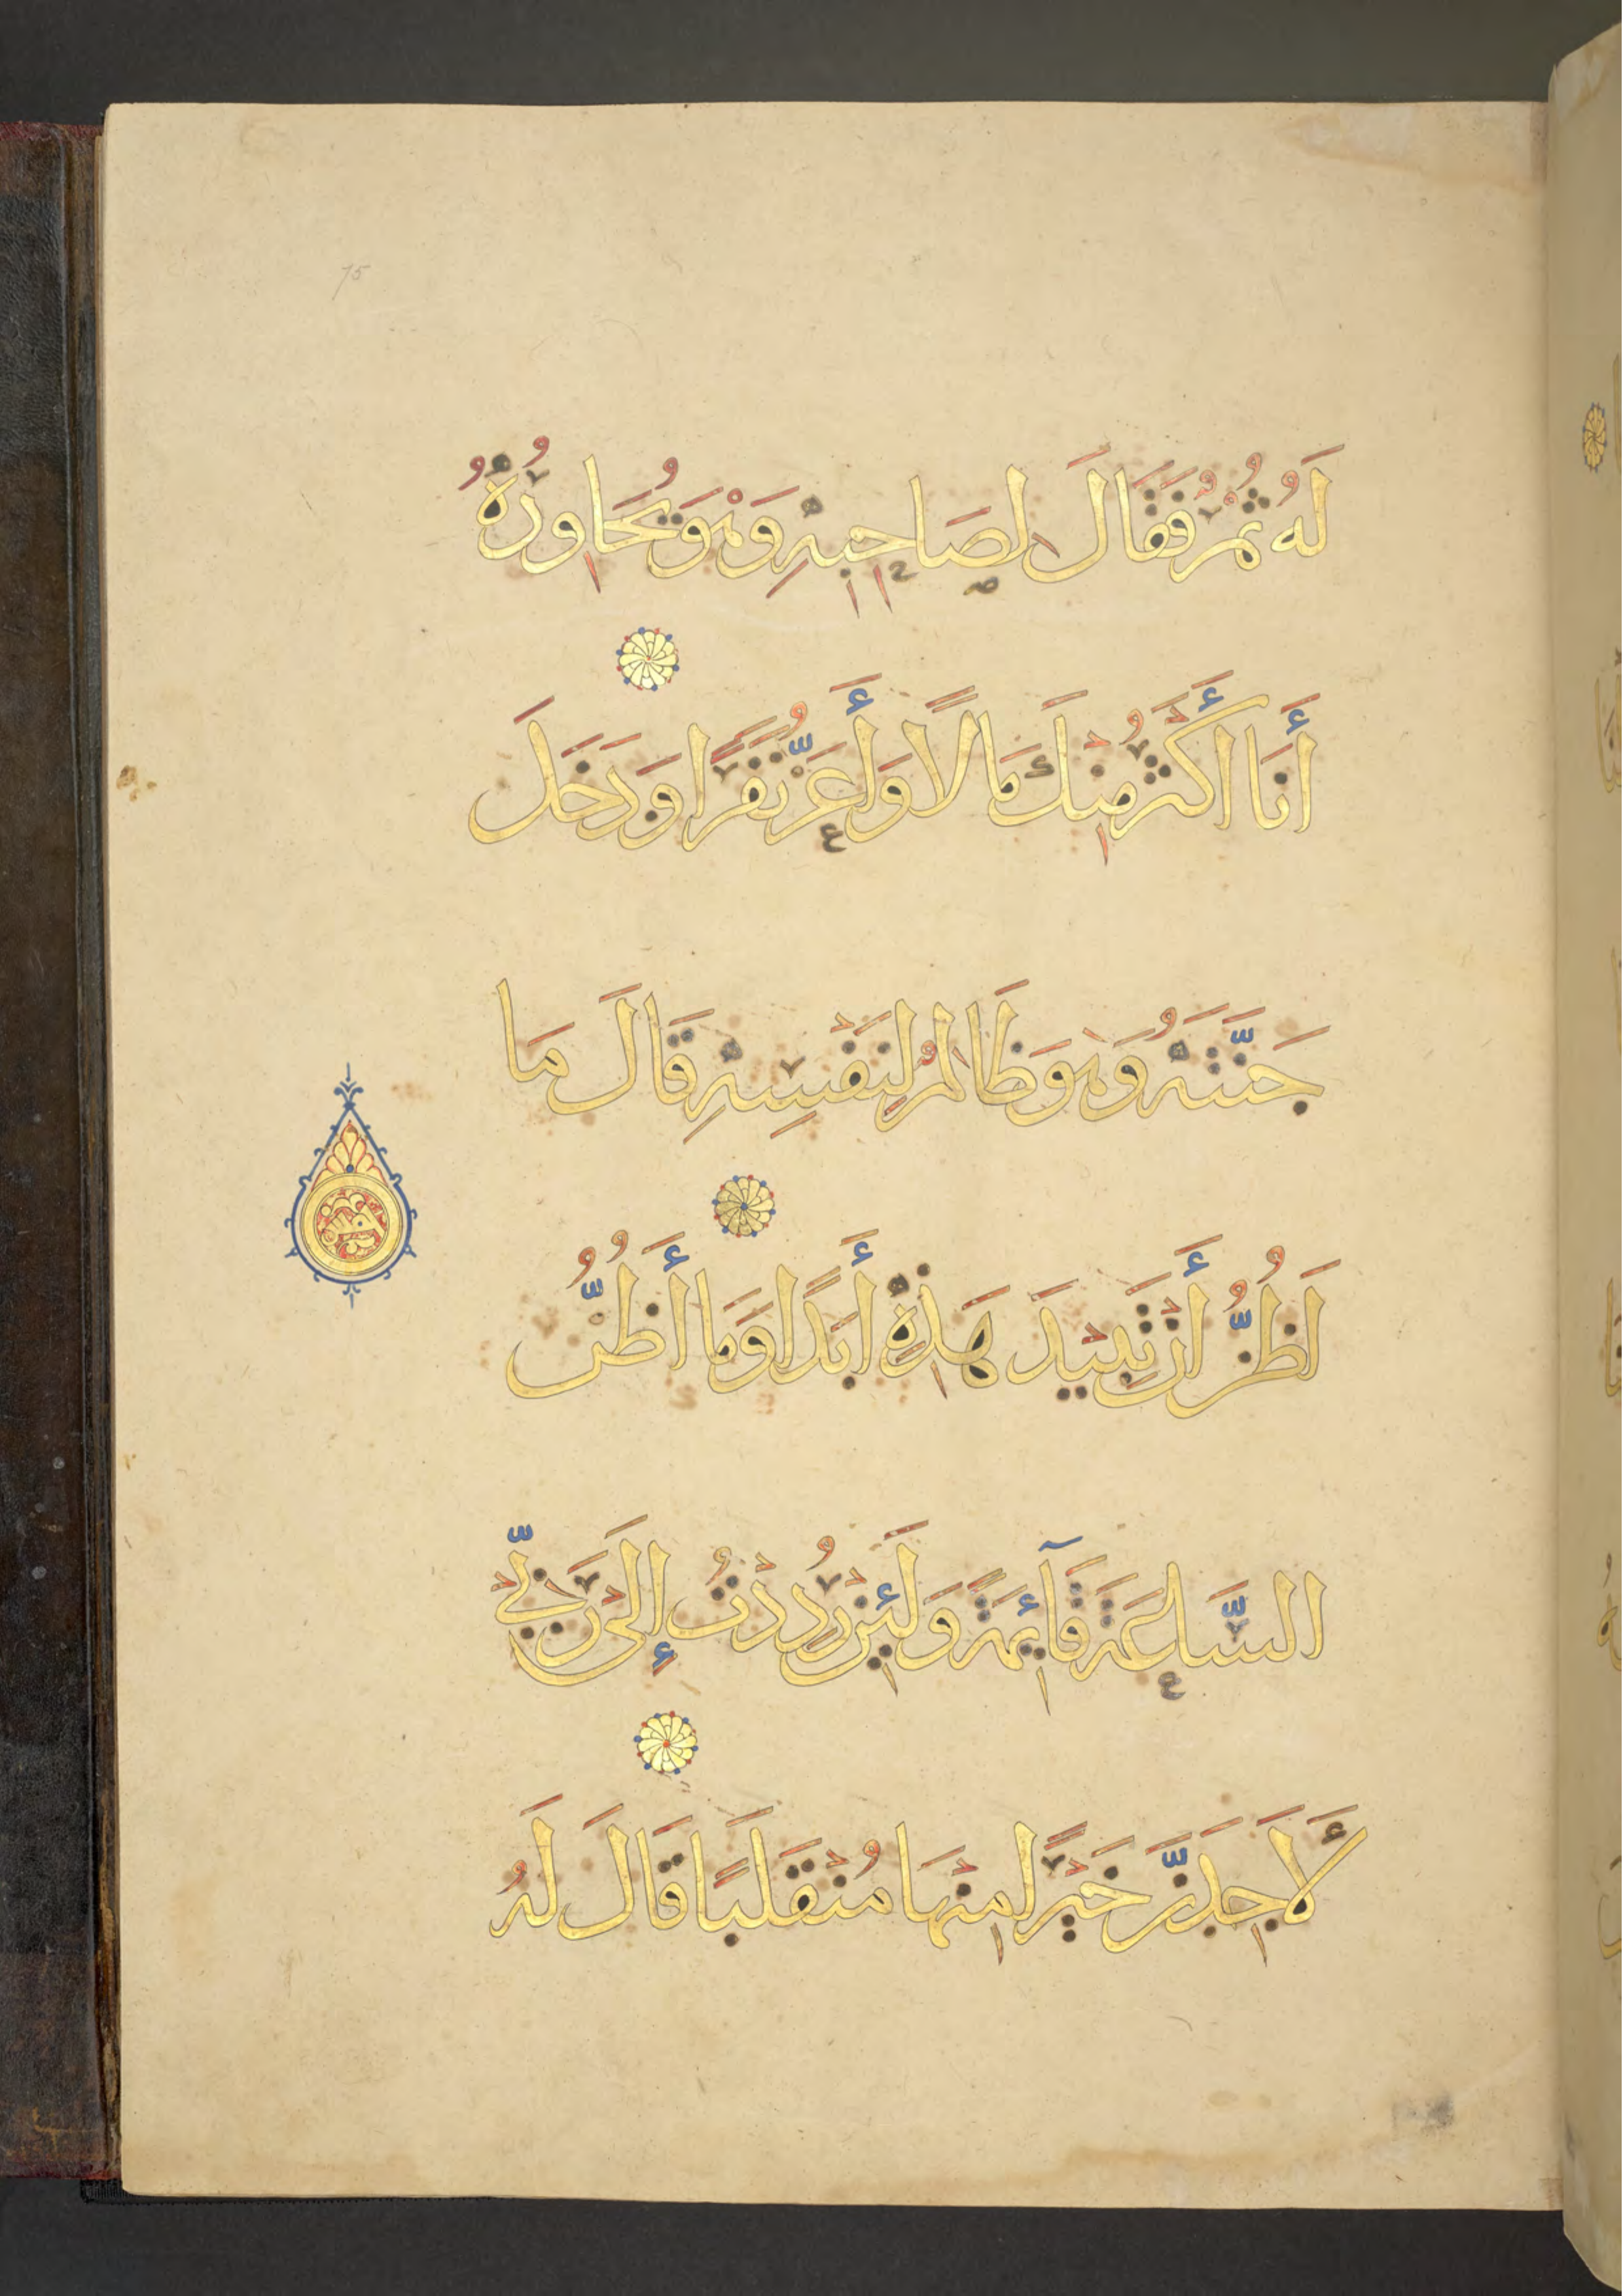 75
لَهُ ثُمْرٌ فَقَالَ لِصَاحِبِهِ وَهْوَ يُحَاوِرُهُ
أَنَا أَكْثَرُ مِنْكَ مَالًا وَأَعَزُّ نَفَرًا وَدَخَلَ
جَنَّتَهُ وَهْوَ ظَالِمٌ لِنَفْسِهِ قَالَ مَا
أَظُنُّ أَنْ تَبِيدَ هَذِهِ أَبَدًا وَمَا أَظُنُّ
السَّاعَةَ قَآئِمَةً وَلَئِنْ رُدِدْتُ إِلَى رَبِّي
لَأَجِدَنَّ خَيْرًا مِنْهَا مُنْقَلَبًا قَالَ لَهُ